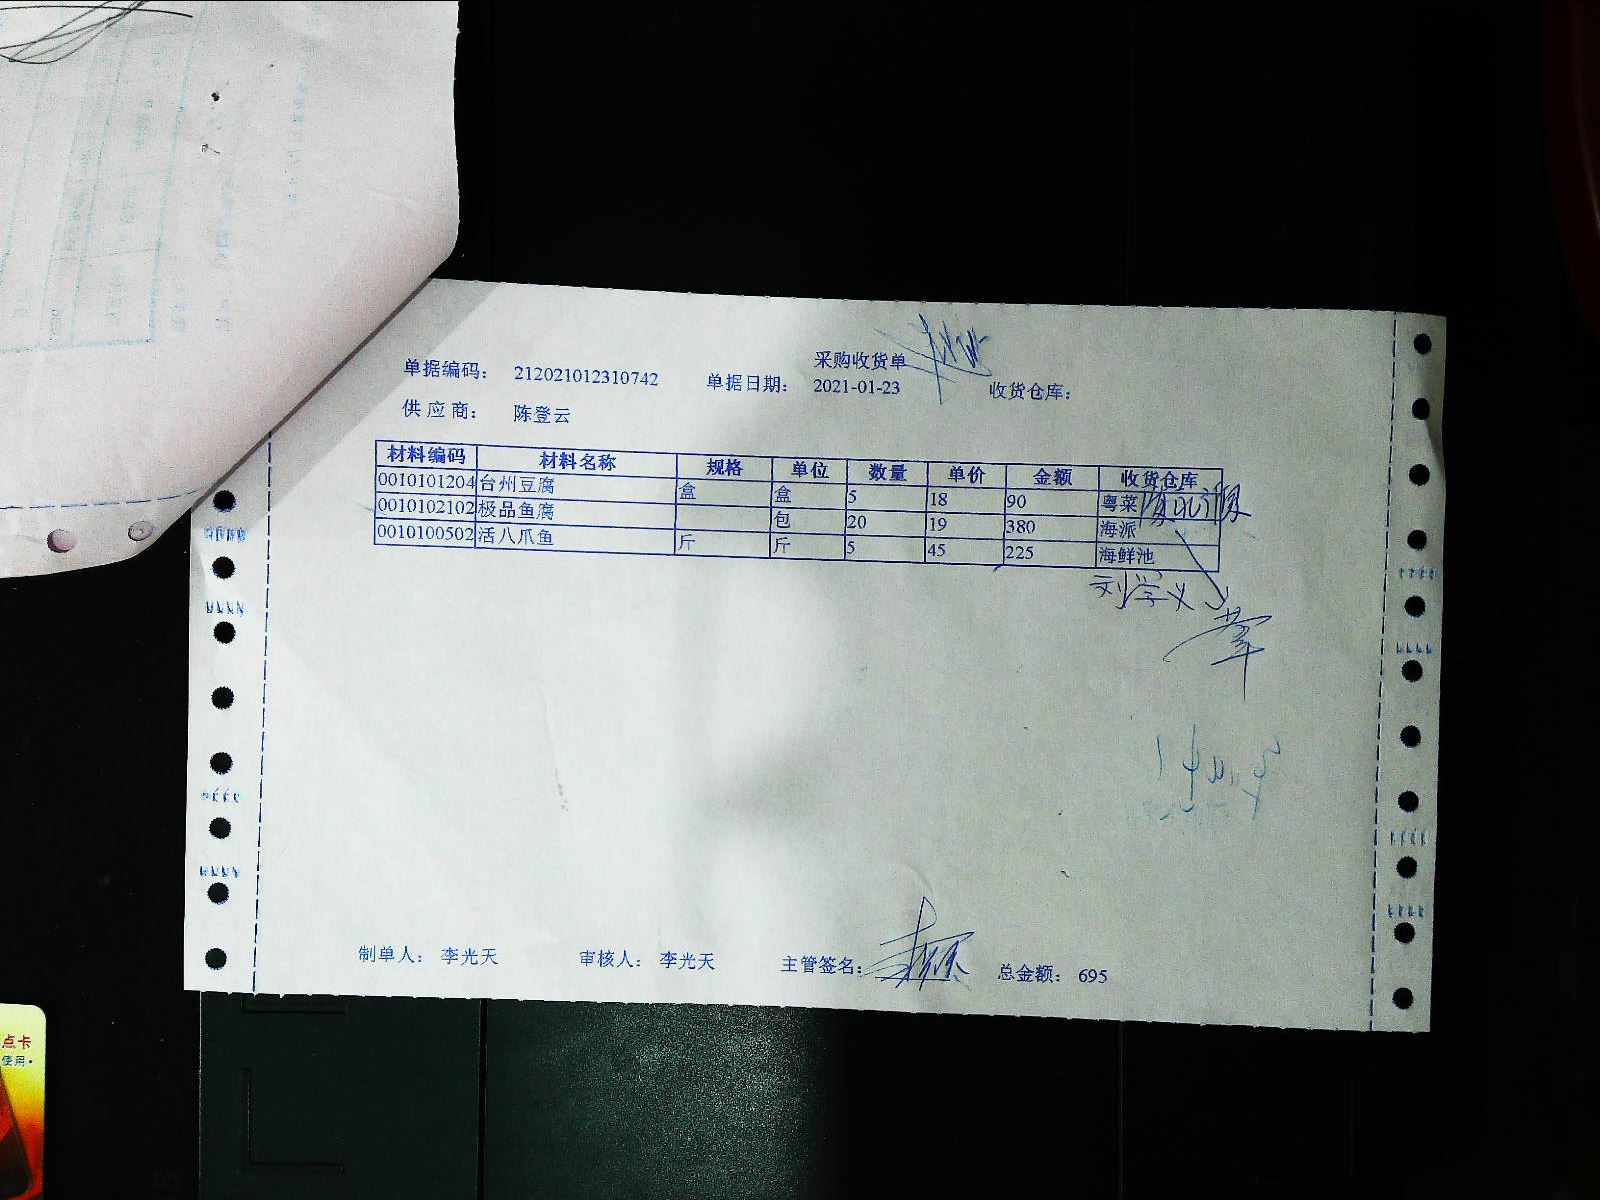 采购收货单
单据编码： 212021012310742 单据日期： 2021-01-23 收货仓库：
供应商： 陈登云
材料编码 材料名称 规格 单位 数量 单价 金额 收货仓库
0010101204 台州豆腐 盒 盒 5 18 90 粤菜
0010102102 极品鱼腐 包 20 19 380 海派
0010100502 活八爪鱼 斤 斤 5 45 225 海鲜池
刘学义
制单人： 李光天 审核人： 李光天 主管签名： 总金额： 695
点卡
使用·